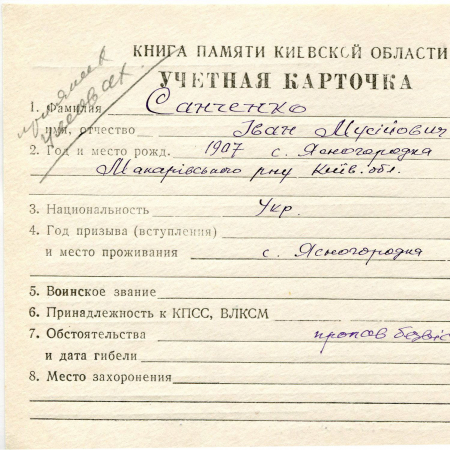 КНИГА ПАМЯТИ КИЕВСКОЙ ОБЛАСТИ
УЧЕТНАЯ КАРТОЧКА
1. Фамилия Санченко
имя, отчество Іван Мусійович
2. Год и место рожд. 1907 с. Ясногородка
Макарівського р-ну Київ. обл.
3. Национальность Укр.
4. Год призыва (вступления)
и место проживания с. Ясногородка
5. Воинское звание
6. Принадлежность к КПСС, ВЛКСМ
7. Обстоятельства пропав безвіс
и дата гибели
8. Место захоронения